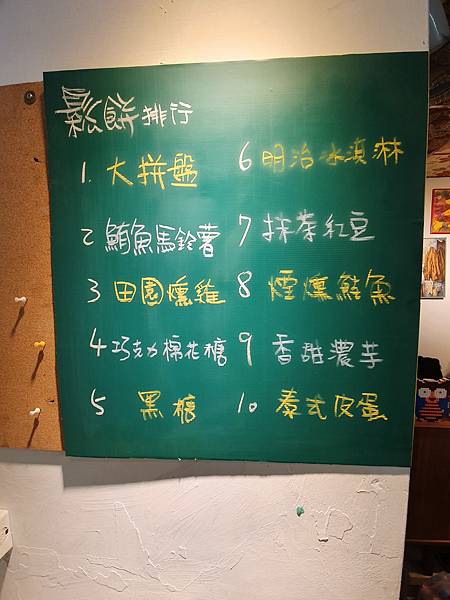 鬆餅排行
1. 大拼盤
2 鮪魚馬鈴薯
3 田園燻雞
4 巧克力棉花糖
5 黑糖
6 明治冰淇淋
7 抹茶紅豆
8 煙燻鮭魚
9 香甜濃芋
10 泰式皮蛋